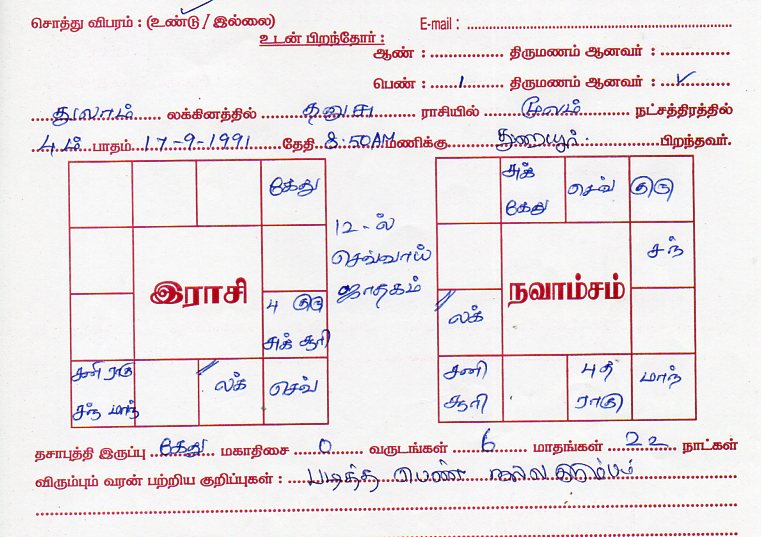 சொத்து விபரம் : (உண்டு / இல்லை) E-mail :
உடன் பிறந்தோர் :
ஆண் : திருமணம் ஆனவர் :
பெண் : 1 திருமணம் ஆனவர் : ✓
துலாம் லக்கினத்தில் தனுசு ராசியில் மூலம் நட்சத்திரத்தில்
4ம் பாதம் 17-9-1991 தேதி 8:50AM மணிக்கு பிறந்தவர்.
கேது
4 குரு
சுக் சூரி
சனி ராகு
சந் மாந்
லக்
செவ்
இராசி
12-ல்
செவ்வாய்
ஜாதகம்
சுக்
கேது
செவ்
குரு
சந்
லக்
சனி
சூரி
4த்
ராகு
மாந்
நவாம்சம்
தசாபுத்தி இருப்பு கேது மகாதிசை 0 வருடங்கள் 6 மாதங்கள் 22 நாட்கள்
விரும்பும் வரன் பற்றிய குறிப்புகள் : படித்த பெண் நல்ல குடும்பம்